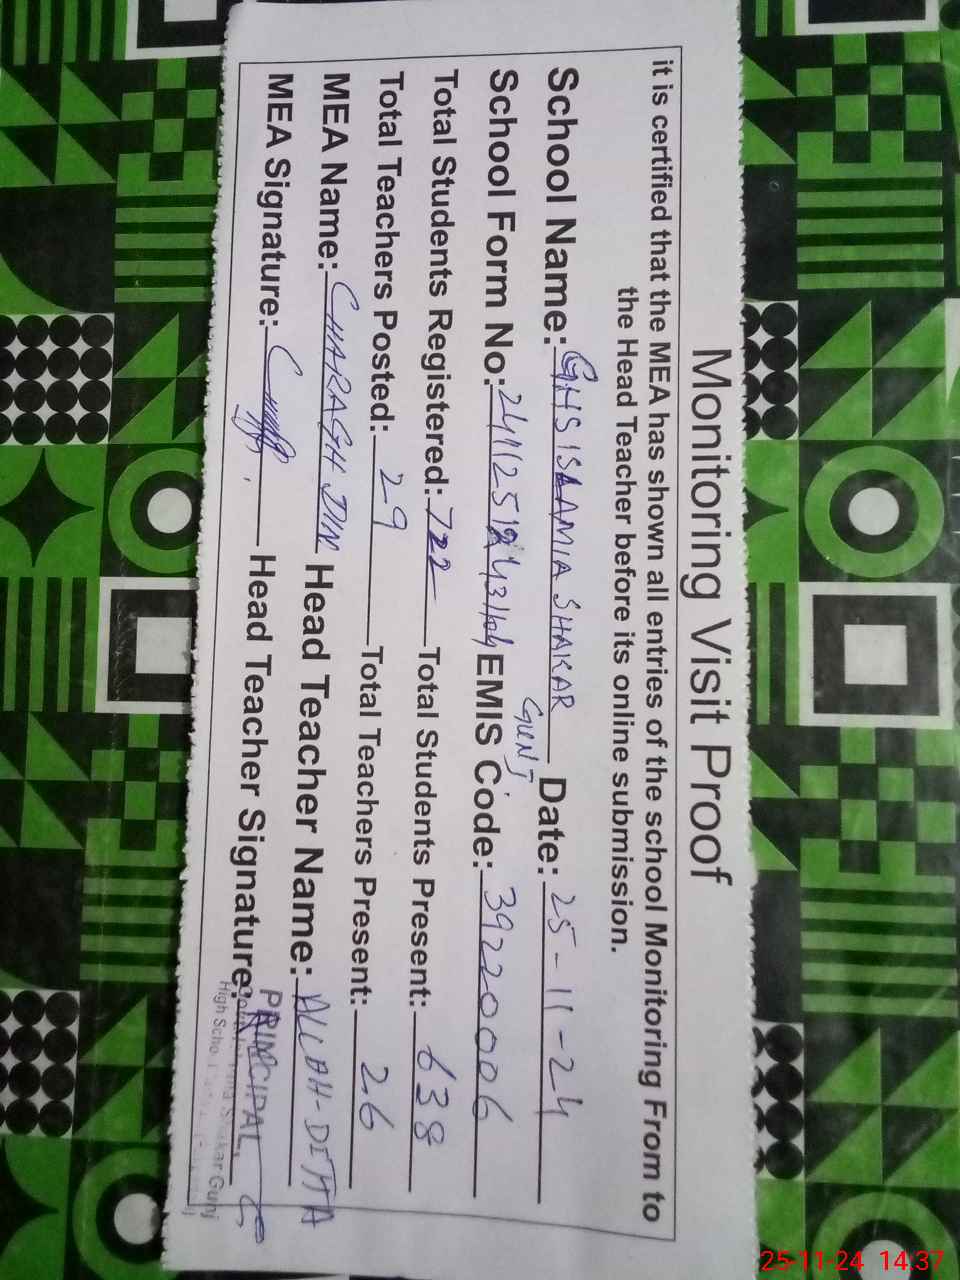 Monitoring Visit Proof
it is certified that the MEA has shown all entries of the school Monitoring From to
the Head Teacher before its online submission.
School Name: GHS ISLAMIA SHAKAR GUNJ. Date: 25-11-24
School Form No: EMIS Code: 39220006
Total Students Registered: 722 Total Students Present: 638
Total Teachers Posted: 29 Total Teachers Present: 26
MEA Name: CHARAGH DIN Head Teacher Name: ALLAH-DITTA
MEA Signature: Head Teacher Signature:
PRINCIPAL
High Shakar Gunj
25-11-24 14:37